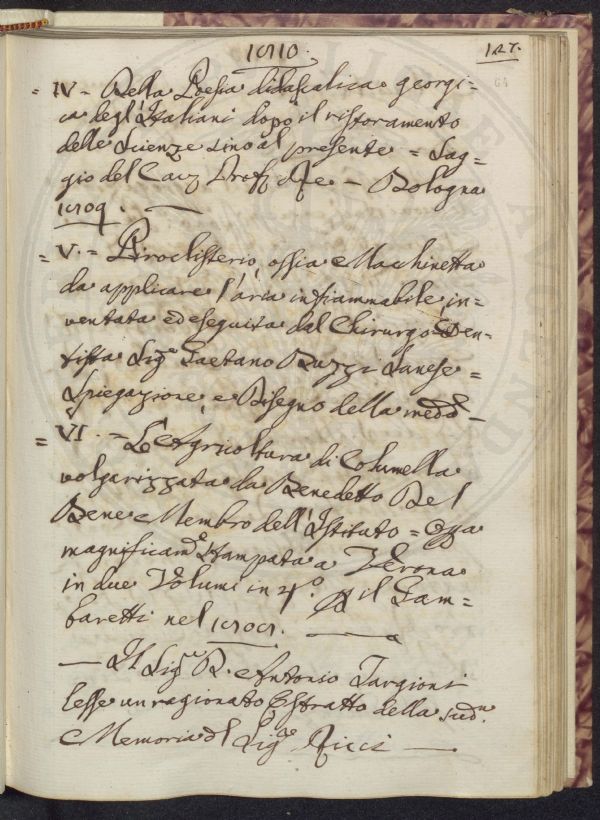 1810.
127.
64
= IV - Della Poesia didascalica georgi=
ca degl'Italiani dopo il ristoramento
delle Scienze sino al presente = Sag=
gio del Cav. Prof. Re - Bologna
1809. —
= V. = Piroclisterio, ossia Macchinetta
da applicare l'aria infiammabile in=
ventata ed eseguita dal Chirurgo Den-
tista Sig.e Gaetano Ruzzi Sanese =
Spiegazione, e Disegno della med.a -
= VI. = L'Agricoltura di Columella
volgarizzata da Benedetto Del
Bene Membro dell'Istituto =
magnificam.e Stampata a Verona
in due Volumi in 4.o il Gam=
baretti nel
— Il Sig.e D. Antonio Targioni
lesse un ragionato Estratto della Sud.a
Memoria del Sig.e Ricci —